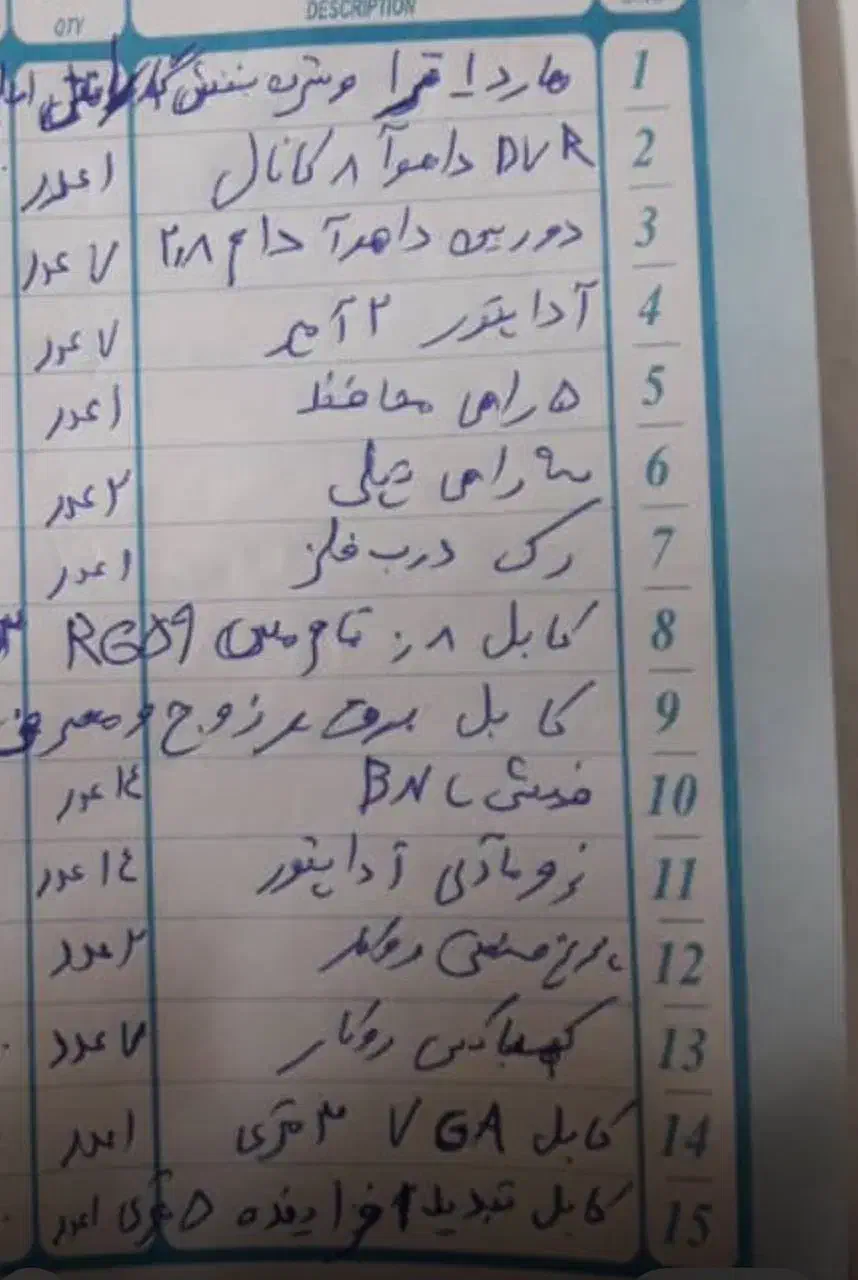 QTY DESCRIPTION
1 هارد ۱ ترا وسترن بنفش
2 DVR داهوآ ۸ کانال ۱ عدد
3 دوربین داهوآ دام ۲,۸ ۷ عدد
4 آداپتور ۲ آمپر ۷ عدد
5 ۵ راهی محافظ ۱ عدد
6 سه راهی ۲ عدد
7 رک درب فلز ۱ عدد
8 کابل تمام مس RG59
9 کابل برق
10 فیش BNC ۱۴ عدد
11 نر و مادگی آداپتور ۱۴ عدد
12 صنعتی روکار ۲ عدد
13 روکار ۷ عدد
14 کابل VGA ۳ متری ۱ عدد
15 کابل تبدیل ۵ متری ۱ عدد